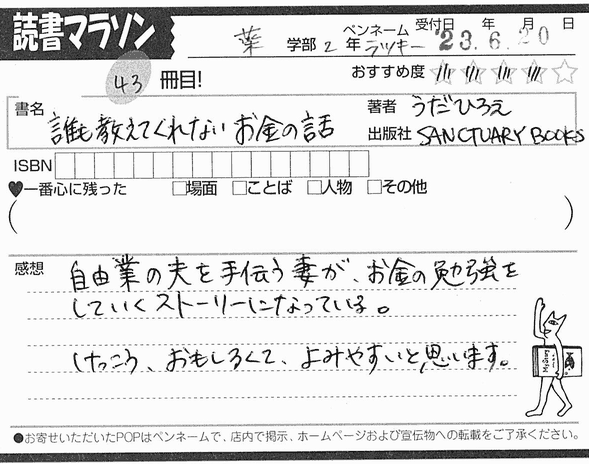 読書マラソン
ペンネーム 受付日 年 月 日
薬 学部 2 年 ラッキー 23.6.20
43 冊目!
おすすめ度
書名 誰も教えてくれない お金の話
著者 うだひろえ
出版社 SANCTUARY BOOKS
ISBN
♥一番心に残った □場面 □ことば □人物 □その他
( )
感想 自由業の夫を手伝う妻が、お金の勉強を
していくストーリーになっている。
けっこう、おもしろくて、よみやすいと思います。
●お寄せいただいたPOPはペンネームで、店内で掲示、ホームページおよび宣伝物への転載をご了承ください。